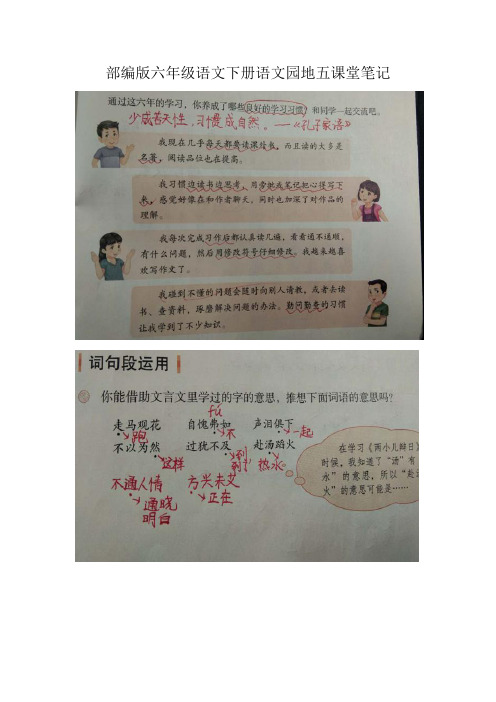 部编版六年级语文下册语文园地五课堂笔记
通过这六年的学习，你养成了哪些良好的学习习惯？和同学一起交流吧。
少成若天性，习惯成自然。——《孔子家语》
我现在几乎每天都要读课外书，而且读的大多是
名著，阅读品位也在提高。
我习惯边读书边思考，用旁批或笔记把心得写下
来，感觉好像在和作者聊天，同时也加深了对作品的
理解。
我每次完成习作后都认真读几遍，看看通不通顺，
有什么问题，然后用修改符号仔细修改。我越来越喜
欢写作文了。
我碰到不懂的问题会随时向别人请教，或者去读
书、查资料，琢磨解决问题的办法。勤问勤查的习惯
让我学到了不少知识。
词句段运用
你能借助文言文里学过的字的意思，推想下面词语的意思吗？
fú
走马观花 自愧弗如 声泪俱下
跑 不 一起
不以为然 过犹不及 赴汤蹈火
这样 到 热水
到
不通人情 方兴未艾
通晓 正在
明白
在学习《两小儿辩日》
时候，我知道了“汤”有
水”的意思，所以“赴汤
火”的意思可能是……